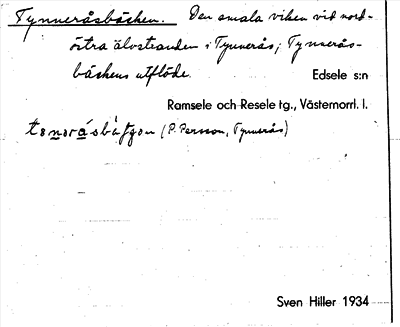 Tynneråsbäcken. Den smala viken vid nord-
östra älvstranden i Tynnerås; Tynnerås-
bäckens utflöde.
Edsele s:n
Ramsele och Resele tg., Västernorrl. l.
(P. Persson, Tynnerås)
Sven Hiller 1934